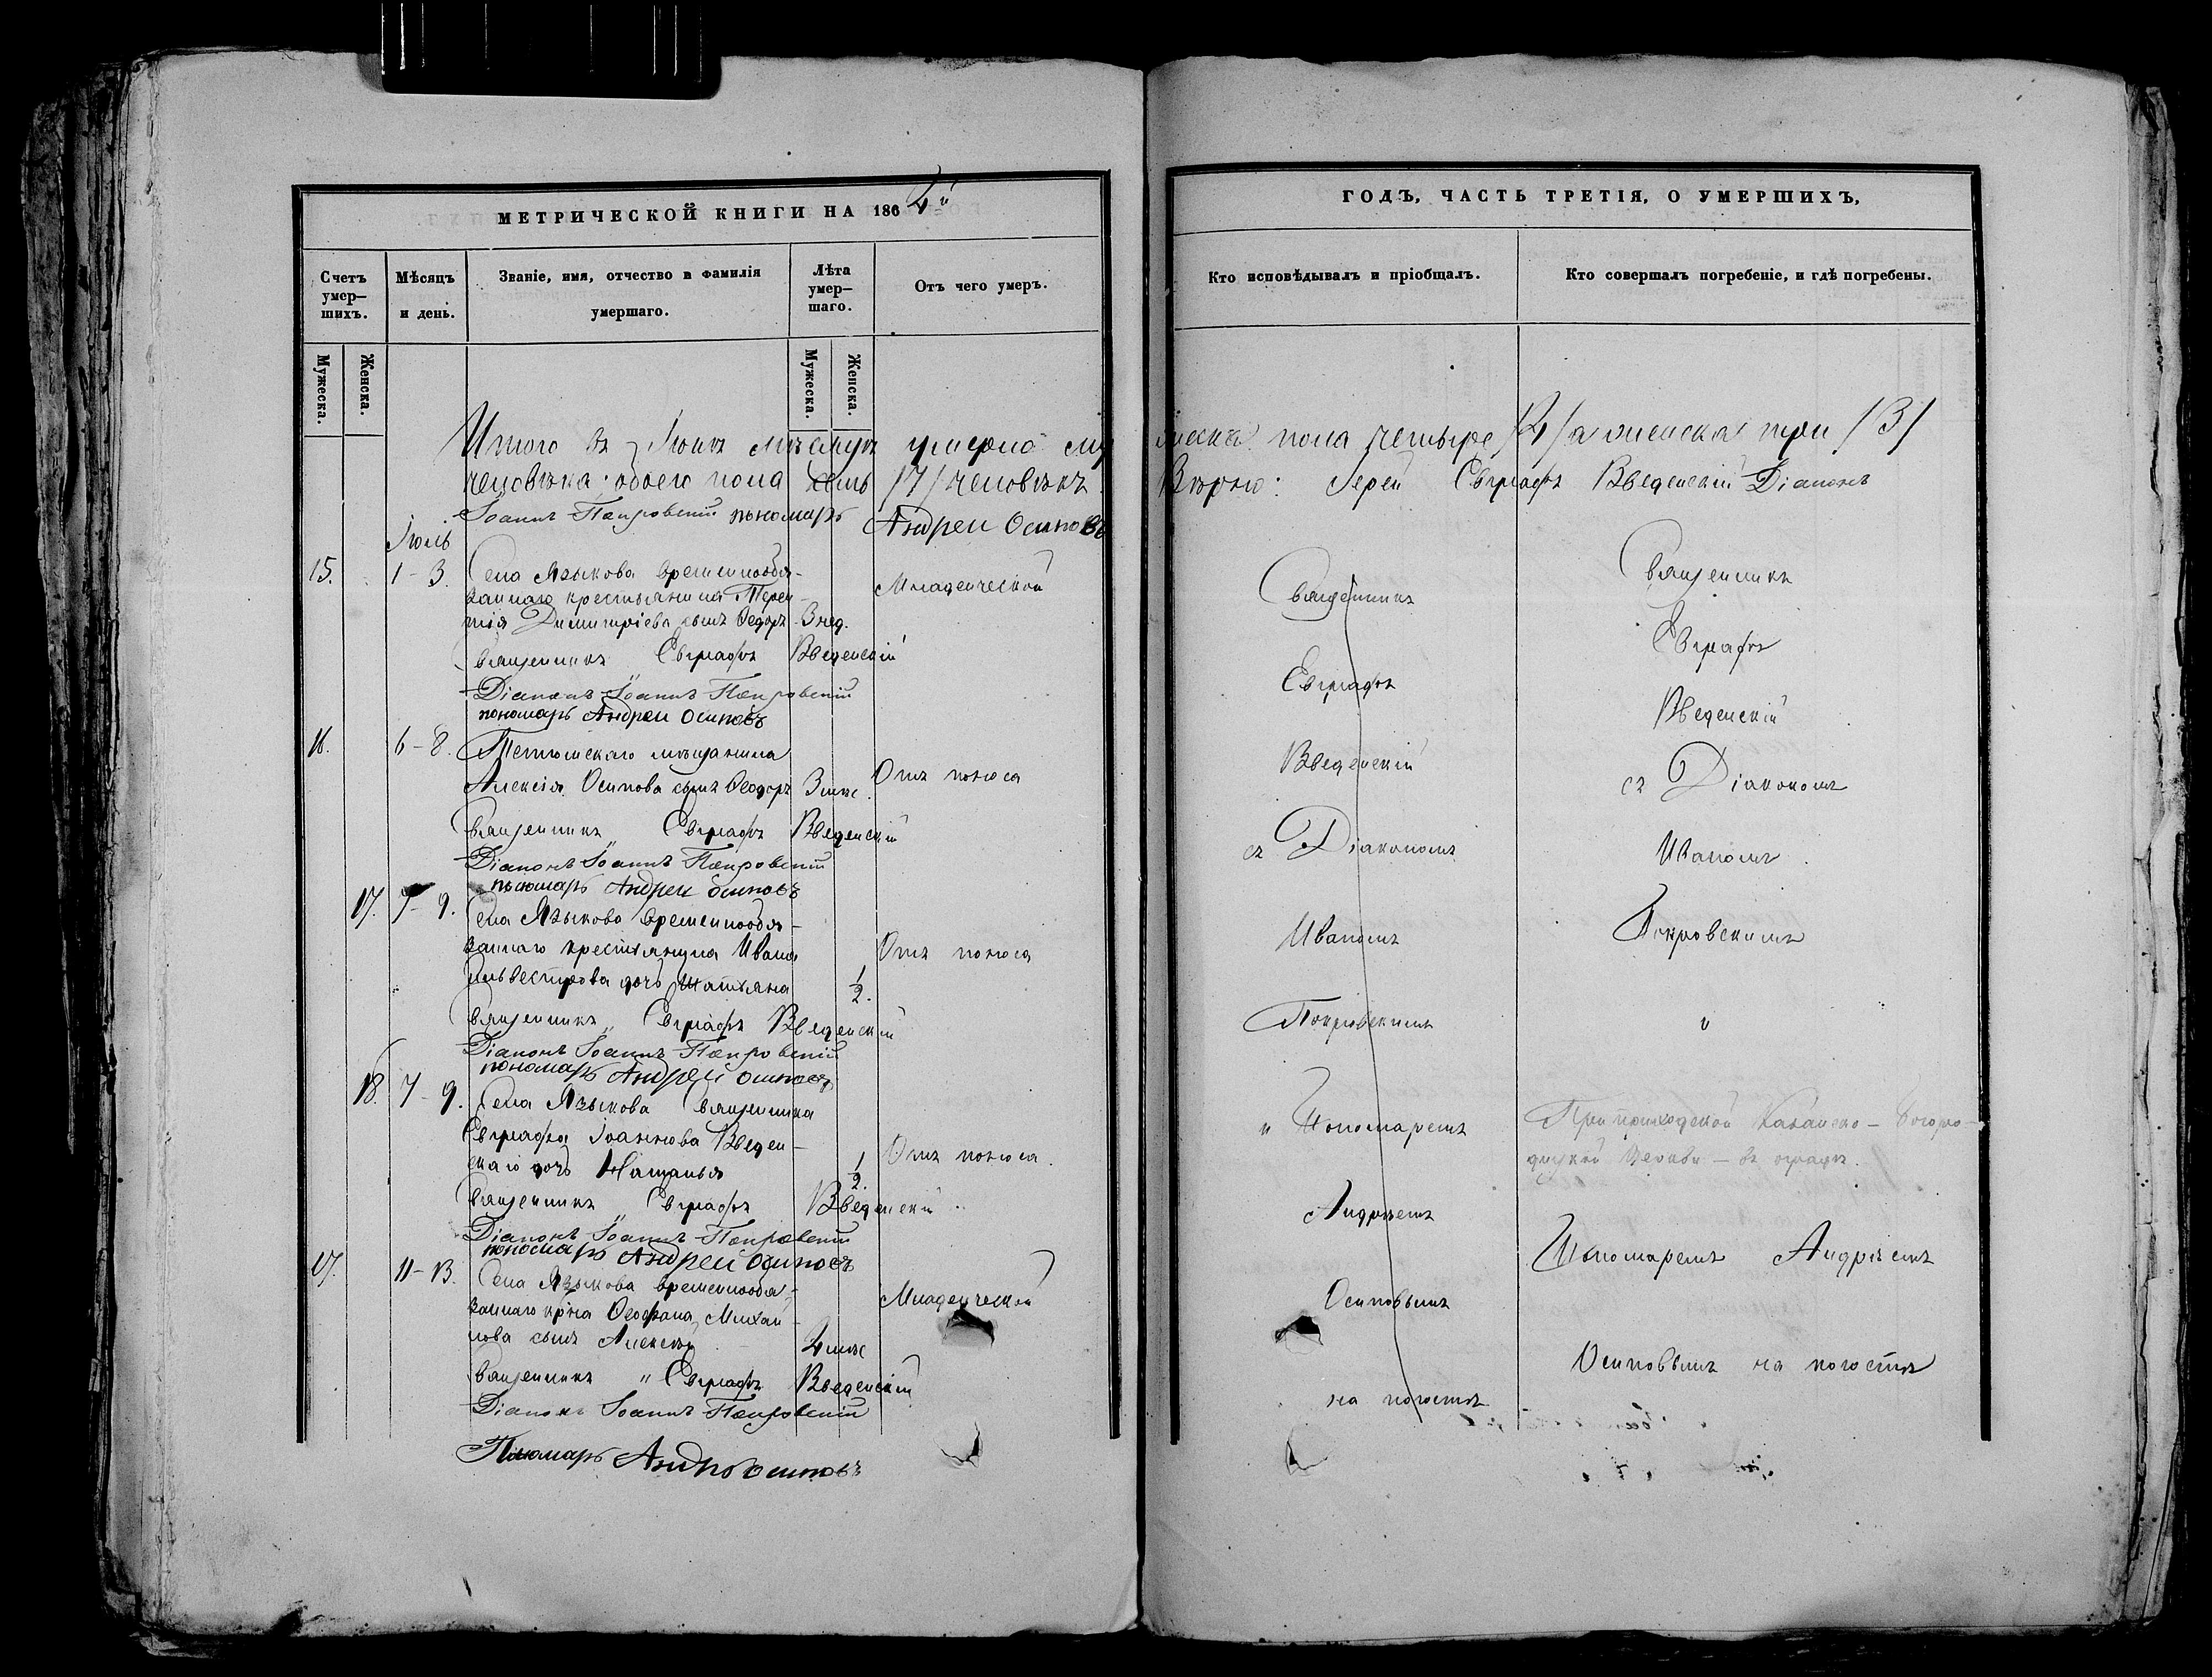 МЕТРИЧЕСКОЙ КНИГИ НА 1864й
Счетъ умер-
шихъ.
Мѣсяцъ
и день.
Званіе, имя, отчество и фамилія
умершаго.
Лѣта
умер-
шаго.
Отъ чего умеръ.
Мужеска.
Женска.
Мужеска.
Женска.
Итого въ Іюнѣ мѣсяцѣ умерло му
человѣка; обоего пола семь /7/ человѣкъ
Іоаннъ Покровскій пономарь Андрей Осиповъ
Іюль
15. 1-3. Села Языкова временнообя-
заннаго крестьянина Терен-
тія Димитріева сынъ Ѳедоръ 3 нед. Младенческой
Священникъ Евграфъ Введенскій
Діаконъ Іоаннъ Покровскій
пономарь Андрей Осиповъ
16. 6-8. Тетюшскаго мѣщанина
Алексія Осипова сынъ Ѳеодоръ 3 мѣс. Отъ поноса
Священникъ Евграфъ Введенскій
Діаконъ Іоаннъ Покровскій
пономарь Андрей Осиповъ
17. 7-9. Села Языкова временнообя-
заннаго крестьянина Ивана Отъ поноса
Сильвестрова дочь Татьяна 1/2.
Священникъ Евграфъ Введенскій
Діаконъ Іоаннъ Покровскій
пономарь Андрей Осиповъ
18. 7-9. Села Языкова Священника
Евграфа Іоаннова Введен-
скаго дочь Наталья 1/2. Отъ поноса.
Священникъ Евграфъ Введенскій
Діаконъ Іоаннъ Покровскій
пономарь Андрей Осиповъ
17. 11-13. Села Языкова временнообя-
заннаго кр-на Ѳеофана Михай- Младенческой
лова сынъ Алексѣй 4 мѣс
Священникъ " Евграфъ Введенскій
Діаконъ Іоаннъ Покровскій
Пономарь Андрей Осиповъ
ГОДЪ, ЧАСТЬ ТРЕТІЯ, О УМЕРШИХЪ,
Кто исповѣдывалъ и пріобщалъ.
Кто совершалъ погребеніе, и гдѣ погребены.
жеска пола четыре /4/ а женска три /3/
Вѣрно: Іерей Евграфъ Введенскій Діаконъ
Священникъ
Евграфъ
Введенскій
съ Діакономъ
Иваномъ
Покровскимъ
и Пономаремъ
Андреемъ
Осиповымъ
на погостѣ
Священникъ
Евграфъ
Введенскій
съ Діакономъ
Иваномъ
Покровскимъ
и
При приходской Казанско-Богоро-
дицкой Церкви - въ оградѣ.
Пономаремъ Андреемъ
Осиповымъ на погостѣ